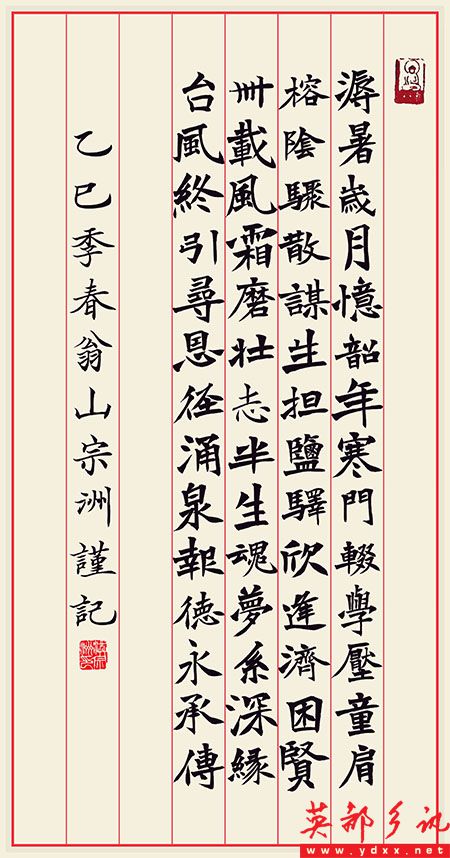 溽暑歲月憶韶年寒門輟學壓童肩
榕陰驟散謀生担鹽驛欣逢濟困賢
卅載風霜磨壯志半生魂夢系深緣
台風終引尋恩徑涌泉報德永承傳
乙巳季春翁山宗洲謹記
英都乡讯
www.ydxx.net